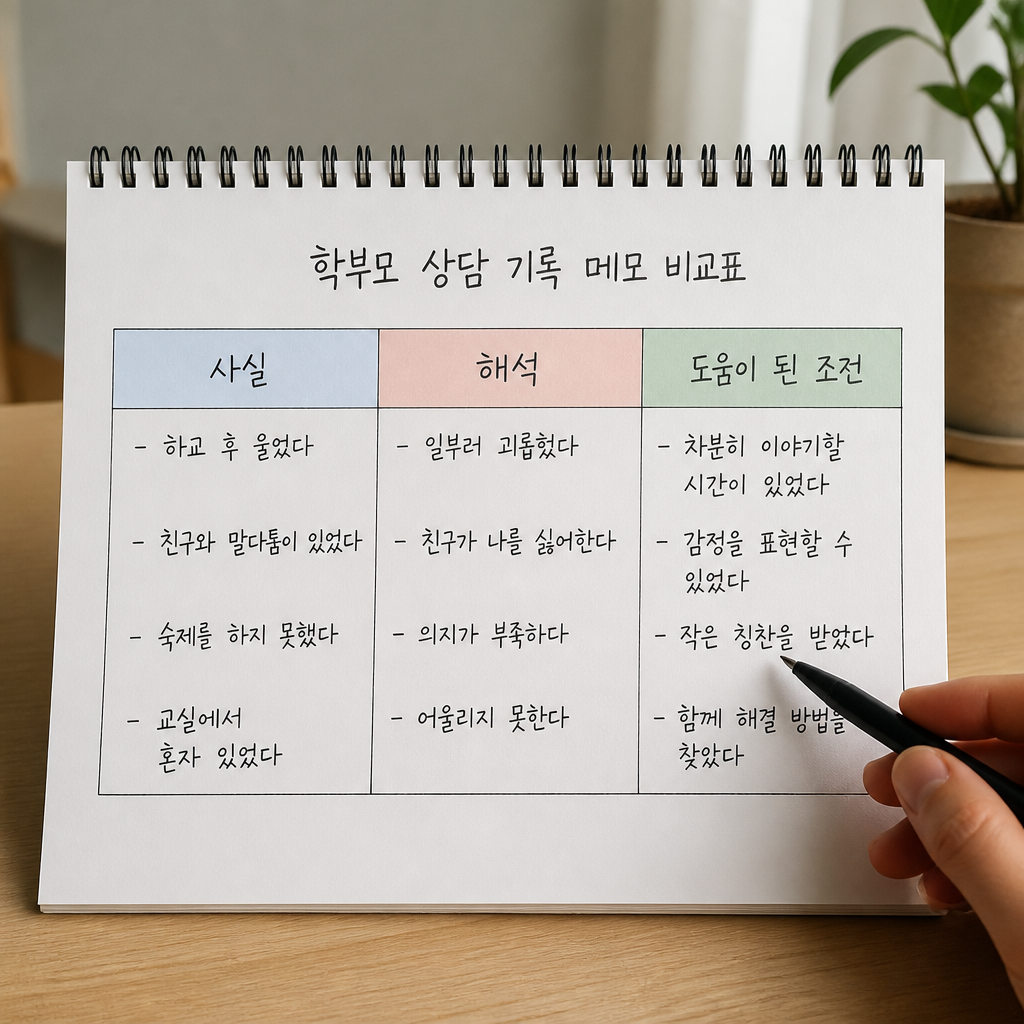 학부모 상담 기록 메모 비교표
사실
해석
도움이 된 조전
- 하교 후 울었다
- 일부러 괴롭혔다
- 차분히 이야기할
시간이 있었다
- 친구와 말다툼이 있었다
- 친구가 나를 싫어한다
- 감정을 표현할 수
있었다
- 숙제를 하지 못했다
- 의지가 부족하다
- 작은 칭찬을 받았다
- 교실에서
혼자 있었다
- 어울리지 못한다
- 함께 해결 방법을
찾았다